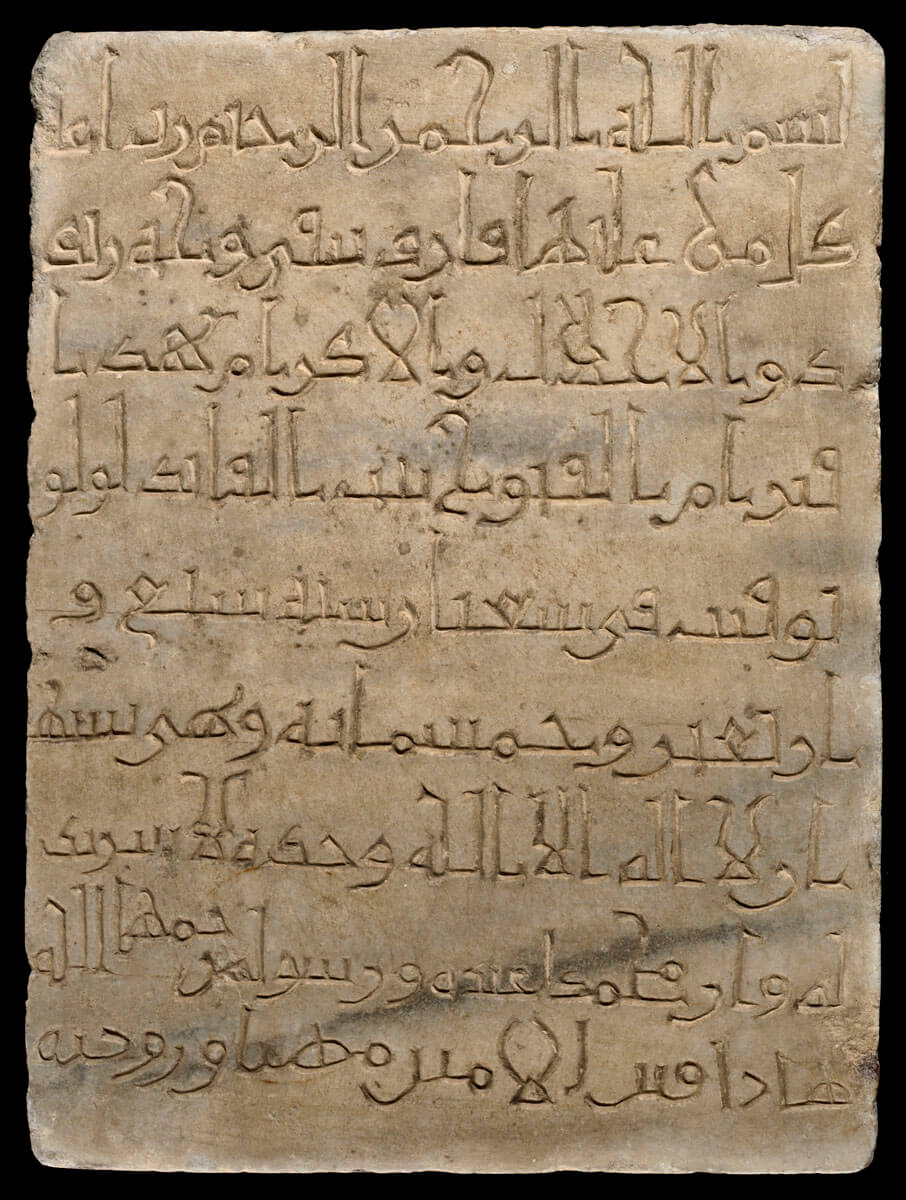 بسم الله الرحمن الرحيم
كل من عليها فان ويبقى وجه رب
ك ذو الجلال والاكرام هذا
قبر ام الفتوح بنت القائد لولو
توفيت في شعبان سنة سبع و
اربعين وخمسمائة وهي تشهد
ان لا اله الا الله وحده لا شريك
له وان محمدا عبده ورسوله رحمها الله
هاذا قبر الامير مهنا وزوجته